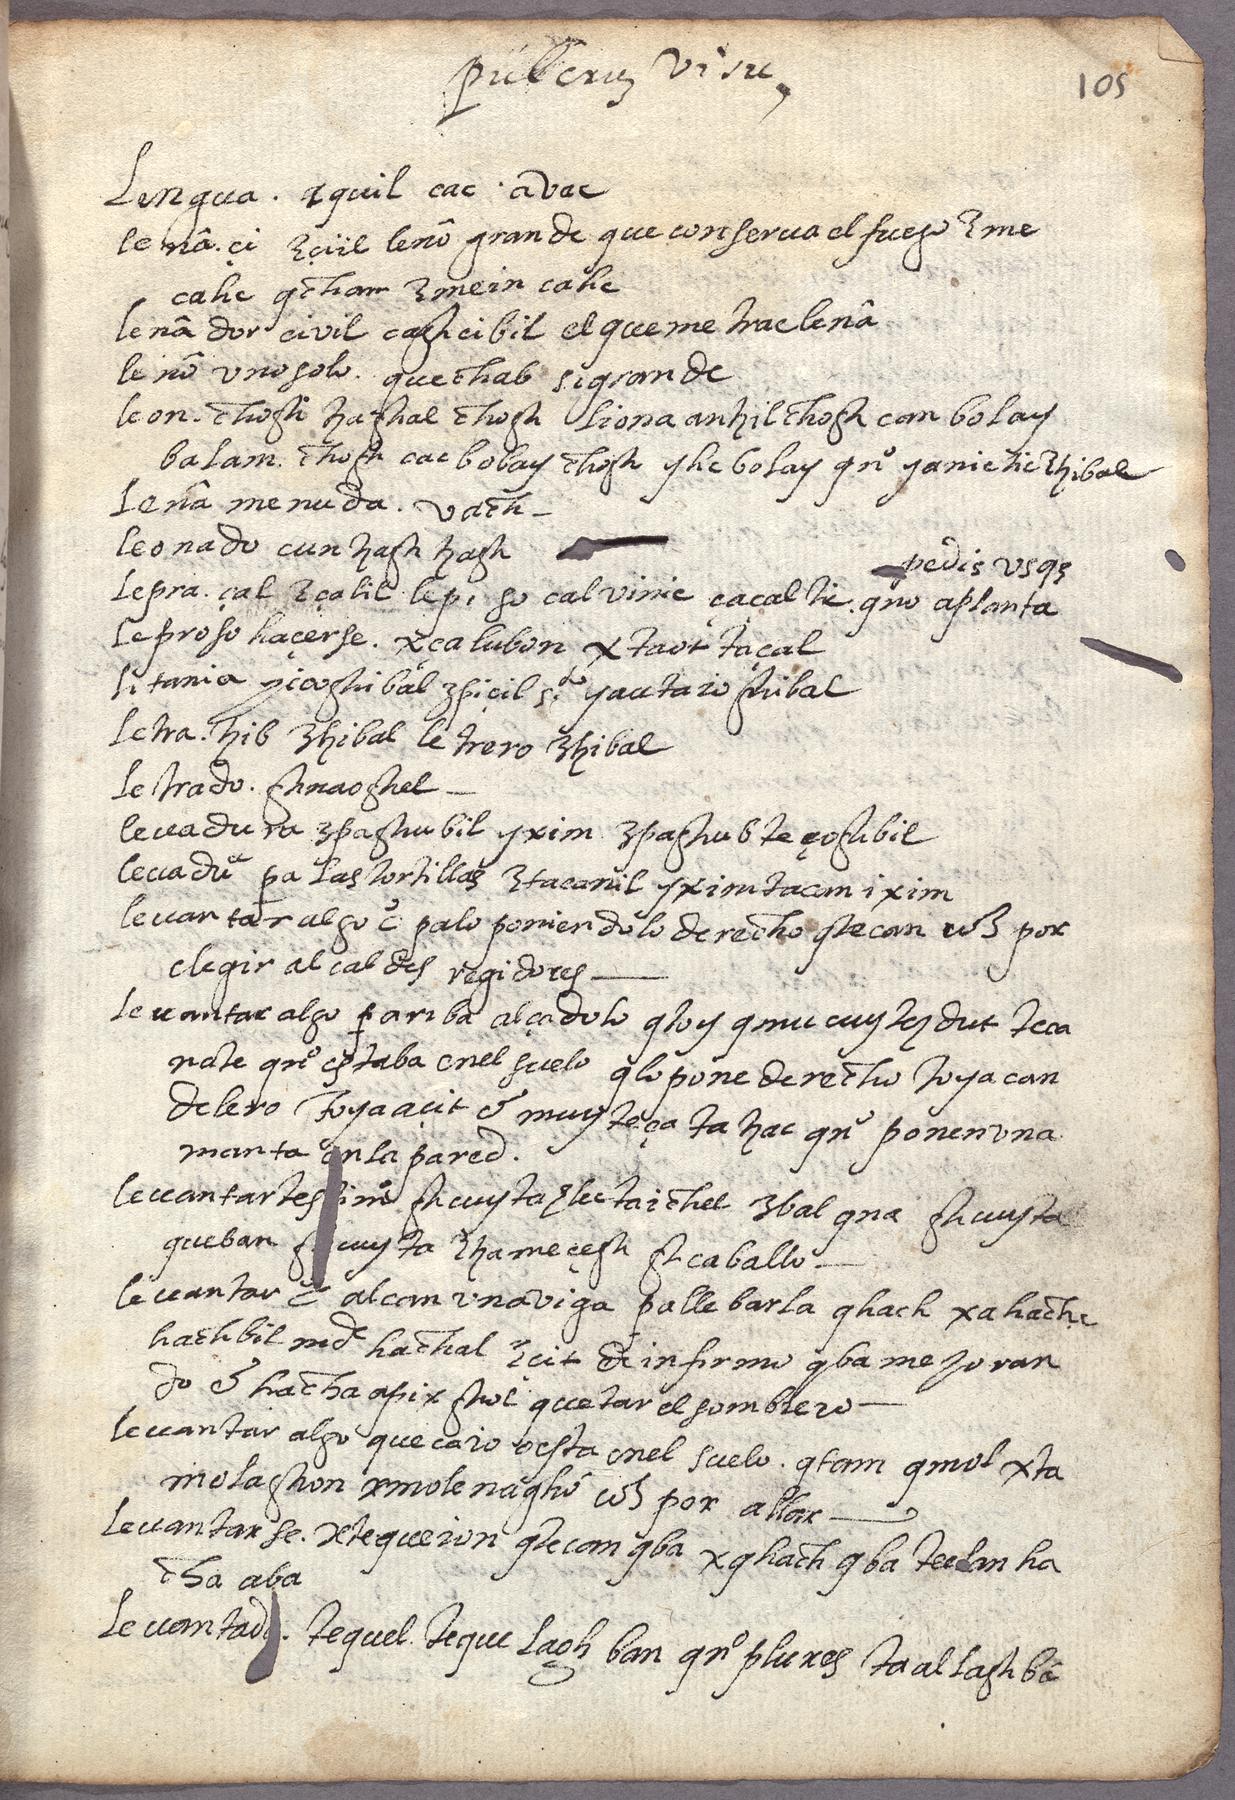 pulcrũ visu,
105
Lengua. aquil cac. avac
leña. çi ꜫçiil leño grande que conserua el fuego ꜫme
cahe qcham ꜫmein cahe
leñador civil caghcibil el que me trae leña
leño vno solo. que chab si grande
leon. chogh ꜧaghal chogh liona anꜧil chogh can bolay
balam. chogh cac bobay chogh yhc bolay qnº yanic tic ꜫhibal
Leña menuda. vach—
leonado cun ꜧagh ꜧagh
pedis vsqꜫ
Lepra. çal ꜫçalil lepi so çal vinic çaçal tic. qño aplanta
leproso haçerse. xçalubon xtaot taçal
litania yicoghibal ꜫpiçil sto yautaioghibal
Letra. ꜧib ꜫhibal letrero ꜫhibal
letrado. ghnaoghel—
leuadura ꜫpaghubil yxim ꜫpaghubte çoghibil
leuadura pa las tortillas ꜫtacanil yxim tacan ixim
leuantar algo c palo poniendolo derecho qtecan por
elegir alcaldes regidores—
leuantar algo parriba alçadolo qtoy qmucuy teꜫdut teca
nate qnº estaba en el suelo qlo pone derecho toya can
delero toya açit & muy teça ta ꜧac qnº ponen vna
manta en la pared.
leuantar testimº ghcuyta ꜫlectaichel ꜫbal qna ghcuyta
queban ghcuyta ꜫhameçegh gh caballo—
leuantar c alcan vna viga pa llebarla qhach xahache
hachbil md hachal ꜫcit de infirmo qba mejoran
do & hacha apix ghol quetar el sombrero—
leuantar algo que caio o esta en el suelo. qtam qmol xta
molaghon xmolenaghº por allar—
Leuantarse. xtequeion qtecan qba xqhach qba teclan ha
cha aba
leuantado. tequel. teque laogh ban qnº plures ta al lagh bã